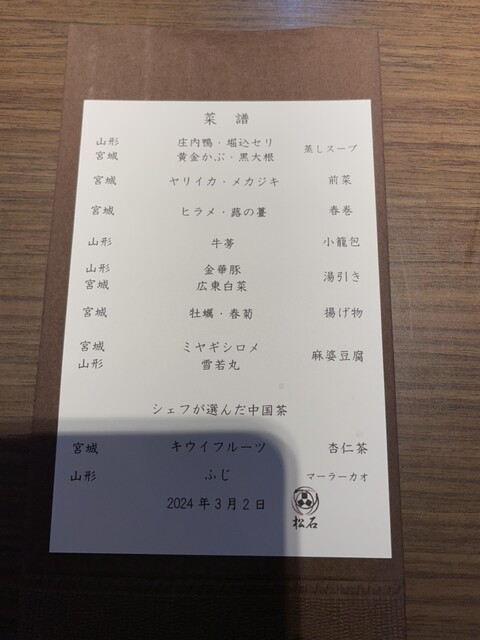 菜譜
山形 庄内鴨・堀込セリ 蒸しスープ
宮城 黄金かぶ・黒大根
宮城 ヤリイカ・メカジキ 前菜
宮城 ヒラメ・蕗の薹 春巻
山形 牛蒡 小籠包
山形 金華豚 湯引き
宮城 広東白菜
宮城 牡蠣・春菊 揚げ物
宮城 ミヤギシロメ 麻婆豆腐
山形 雪若丸
シェフが選んだ中国茶
宮城 キウイフルーツ 杏仁茶
山形 ふじ マーラーカオ
2024年3月2日
松石